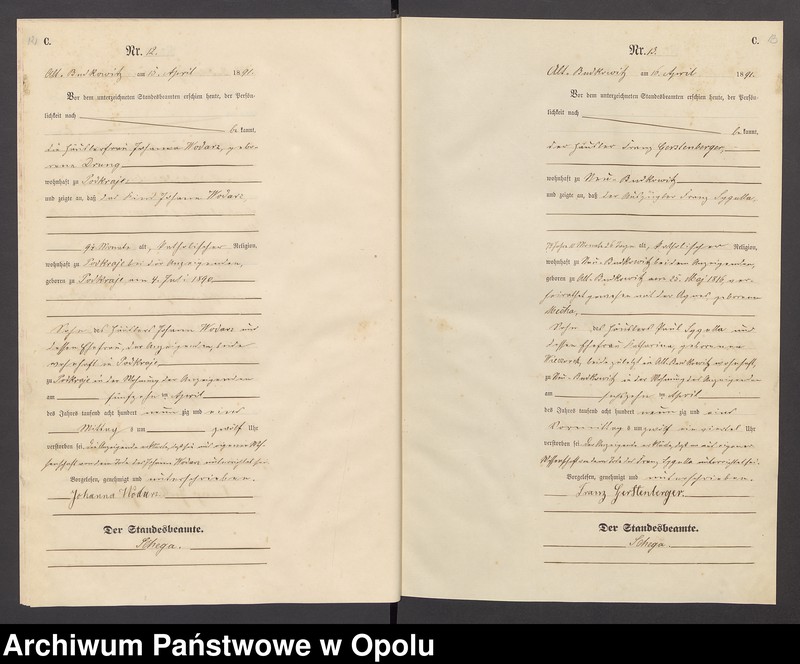 C.
Nr. 12.
Alt-Budkowitz am 15. April 1891.
Vor dem unterzeichneten Standesbeamten erschien heute, der Persön-
lichkeit nach
bekannt,
die Häuslerfrau Johanna Wodarz, gebo-
rene Drung
wohnhaft zu Podkraje
und zeigte an, daß das Kind Johann Wodarz,
9½ Monate alt, katholischer Religion,
wohnhaft zu Podkraje bei der Anzeigenden,
geboren zu Podkraje am 4. Juli 1890,
Sohn des Häuslers Johann Wodarz und
dessen Ehefrau, der Anzeigenden, beide
wohnhaft in Podkraje,
zu Podkraje in der Wohnung der Anzeigenden
am fünfzehnten April
des Jahres tausend acht hundert neunzig und eins
Mittag um zwölf Uhr
verstorben sei, die Anzeigende erklärte, daß sie aus eigener Wis-
senschaft von dem Tode des Johann Wodarz unterrichtet sei.
Vorgelesen, genehmigt und unterschrieben.
Johanna Wodarz
Der Standesbeamte.
Schega.
C.
Nr. 13.
Alt-Budkowitz am 16. April 1891.
Vor dem unterzeichneten Standesbeamten erschien heute, der Persön-
lichkeit nach
bekannt,
der Häusler Franz Gerstenberger,
wohnhaft zu Neu-Budkowitz
und zeigte an, daß der Auszügler Franz Sygulla,
alt, katholischer Religion,
wohnhaft zu Neu-Budkowitz bei dem Anzeigenden,
geboren zu Alt-Budkowitz am 1816, ver-
heirathet gewesen mit der Agnes geborene
Sohn des Häuslers Paul Sygulla und
dessen Ehefrau Katharina, geborene
beide zuletzt in Alt-Budkowitz wohnhaft,
zu Neu-Budkowitz in der Wohnung des Anzeigenden
am sechszehnten April
des Jahres tausend acht hundert neunzig und eins
Vormittag um zwölf ein viertel Uhr
verstorben sei, der Anzeigende erklärte, daß er aus eigener
Wissenschaft von dem Tode des Franz Sygulla unterrichtet sei.
Vorgelesen, genehmigt und unterschrieben.
Franz Gerstenberger
Der Standesbeamte.
Schega.
Archiwum Państwowe w Opolu